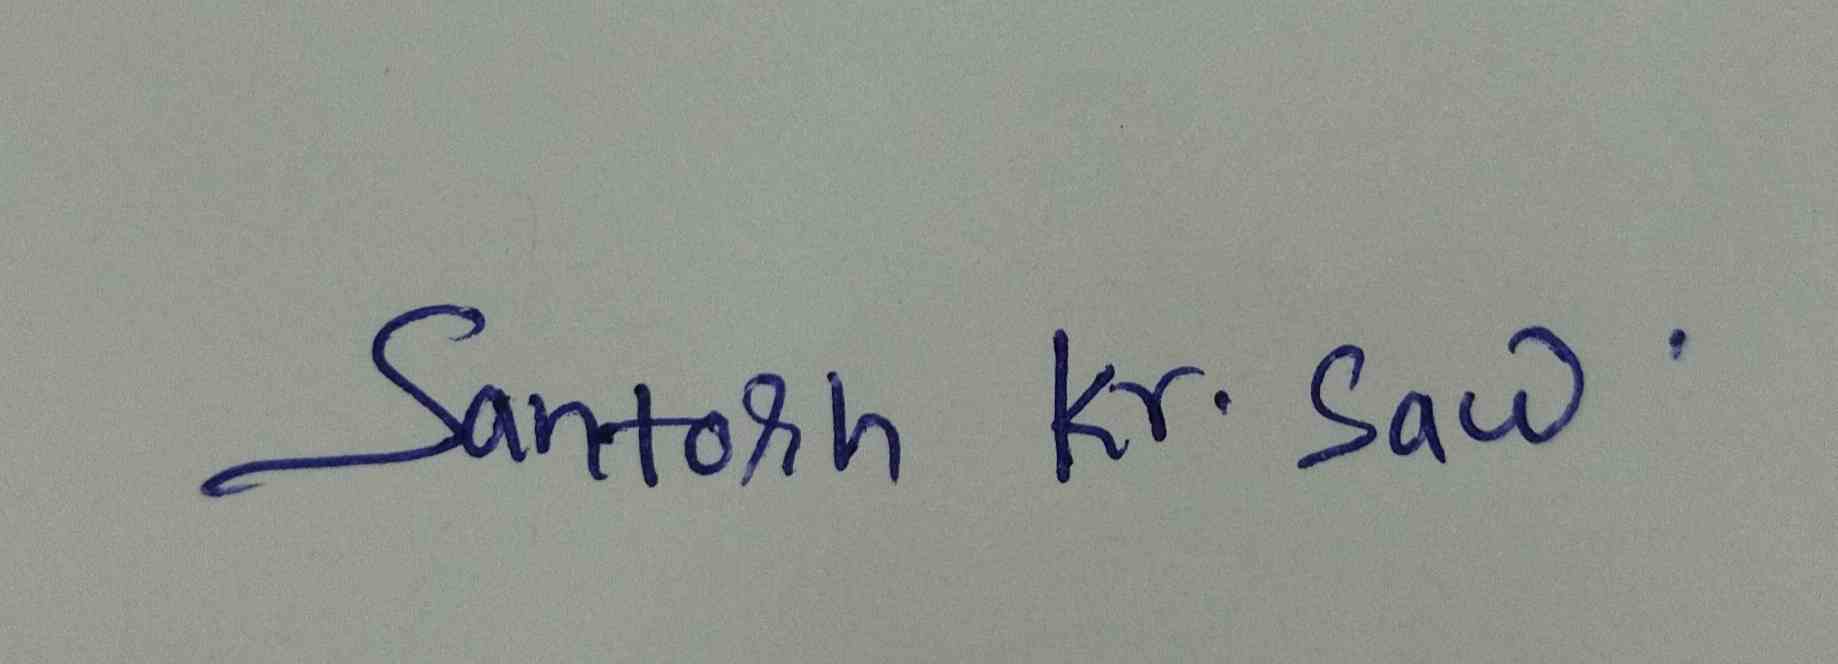 Santosh Kr. Saw